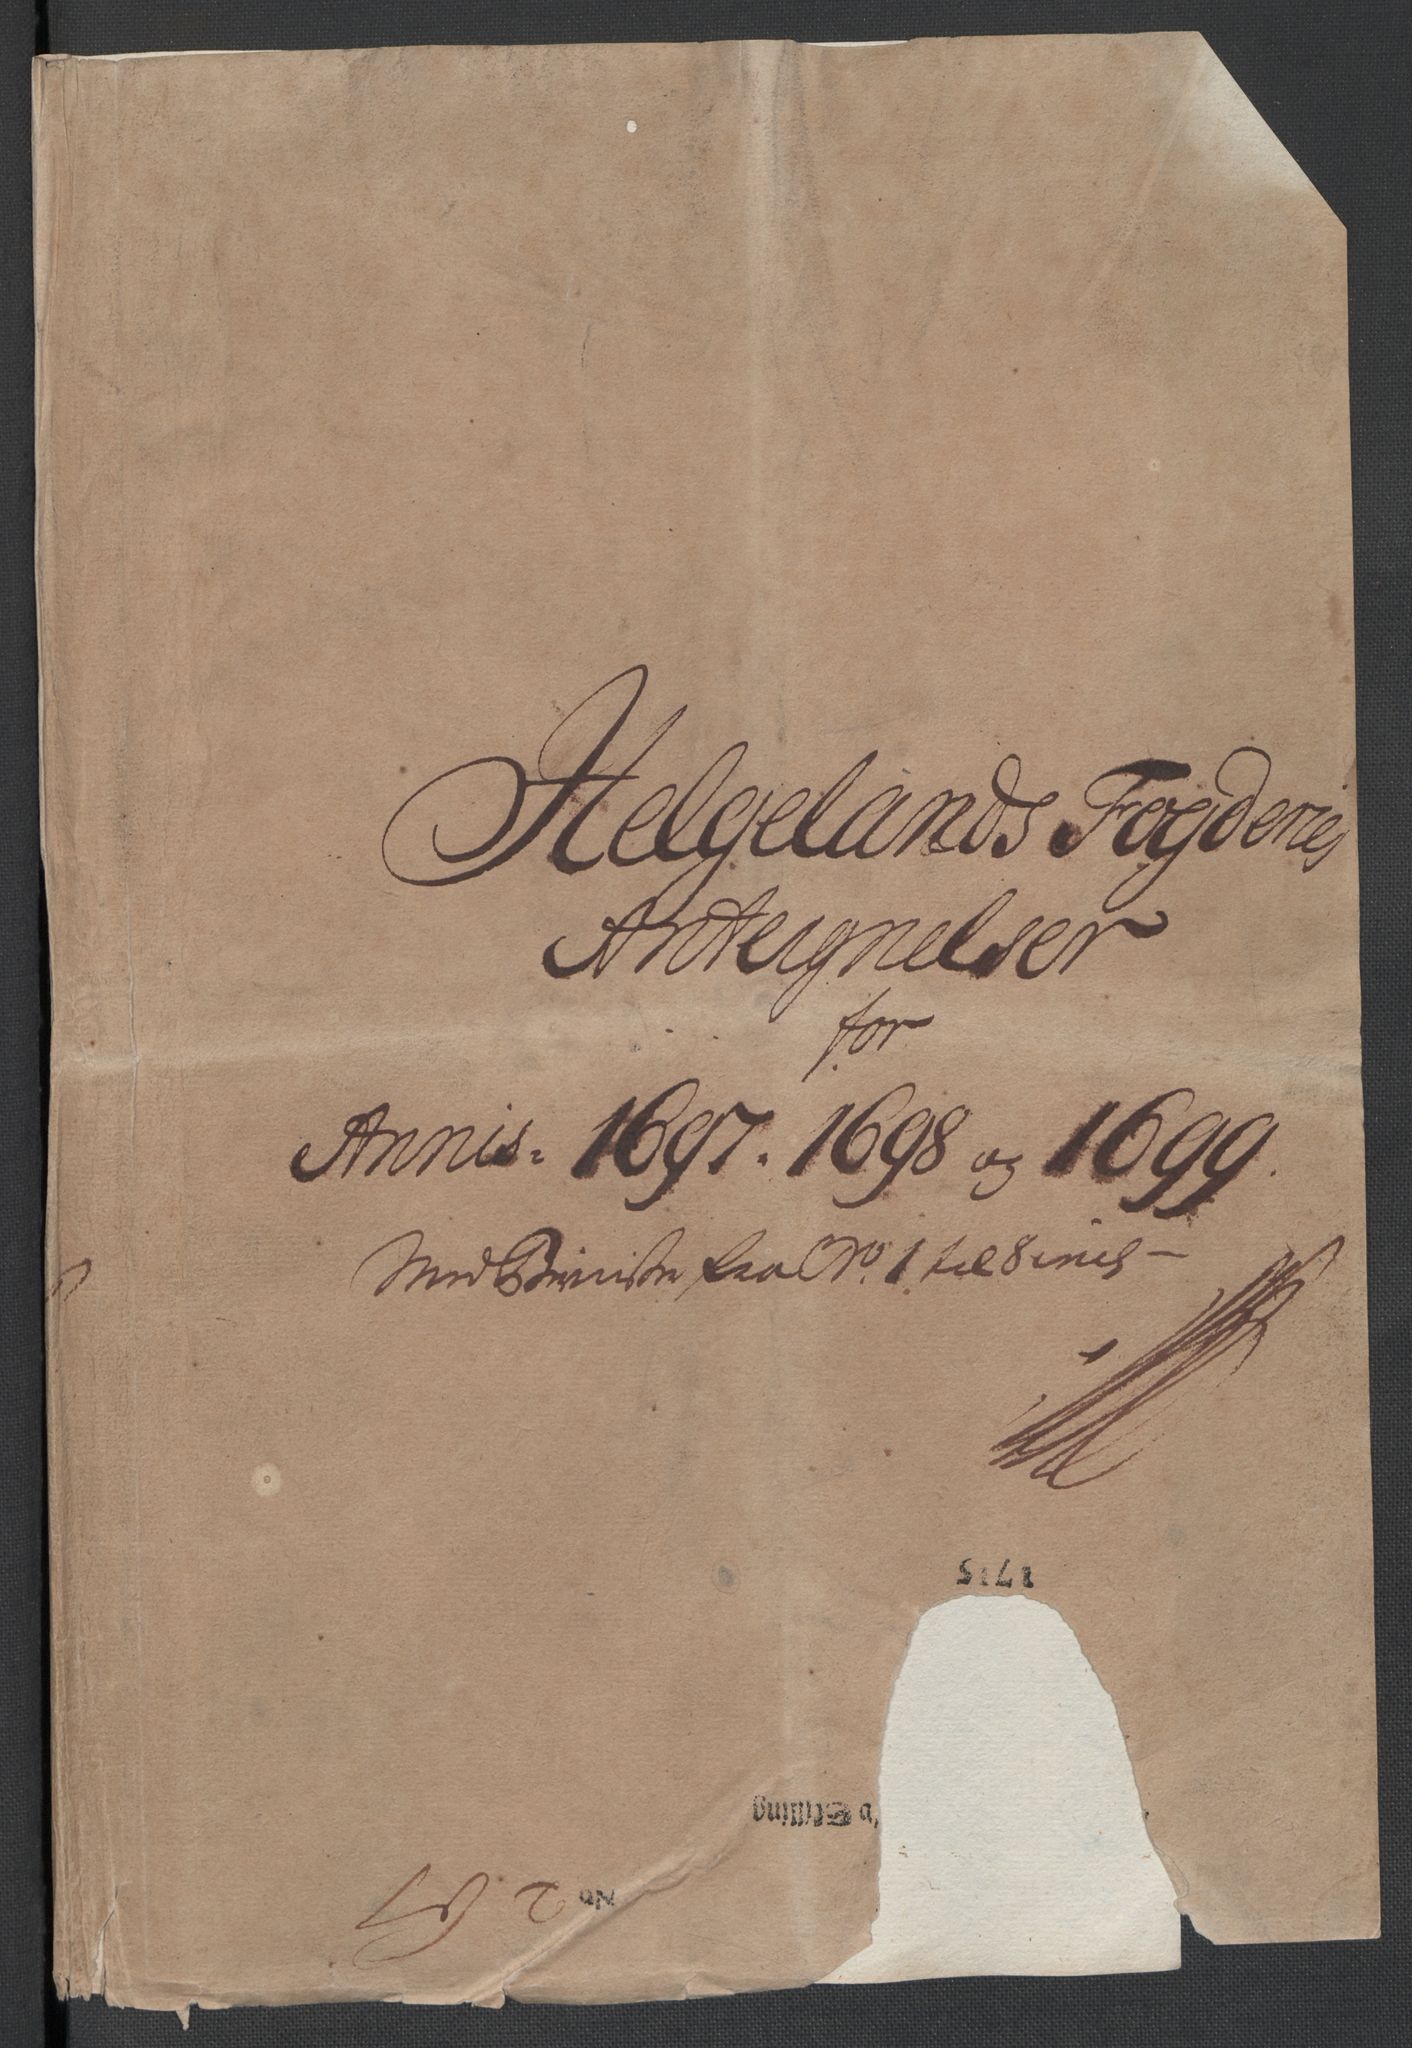 Helgelands Fogderies
Anteignelser
for
Annis. 1697. 1698 og 1699.
Med Beviiser fra No. 1 til 8 incl
1715
Skilling
No 2